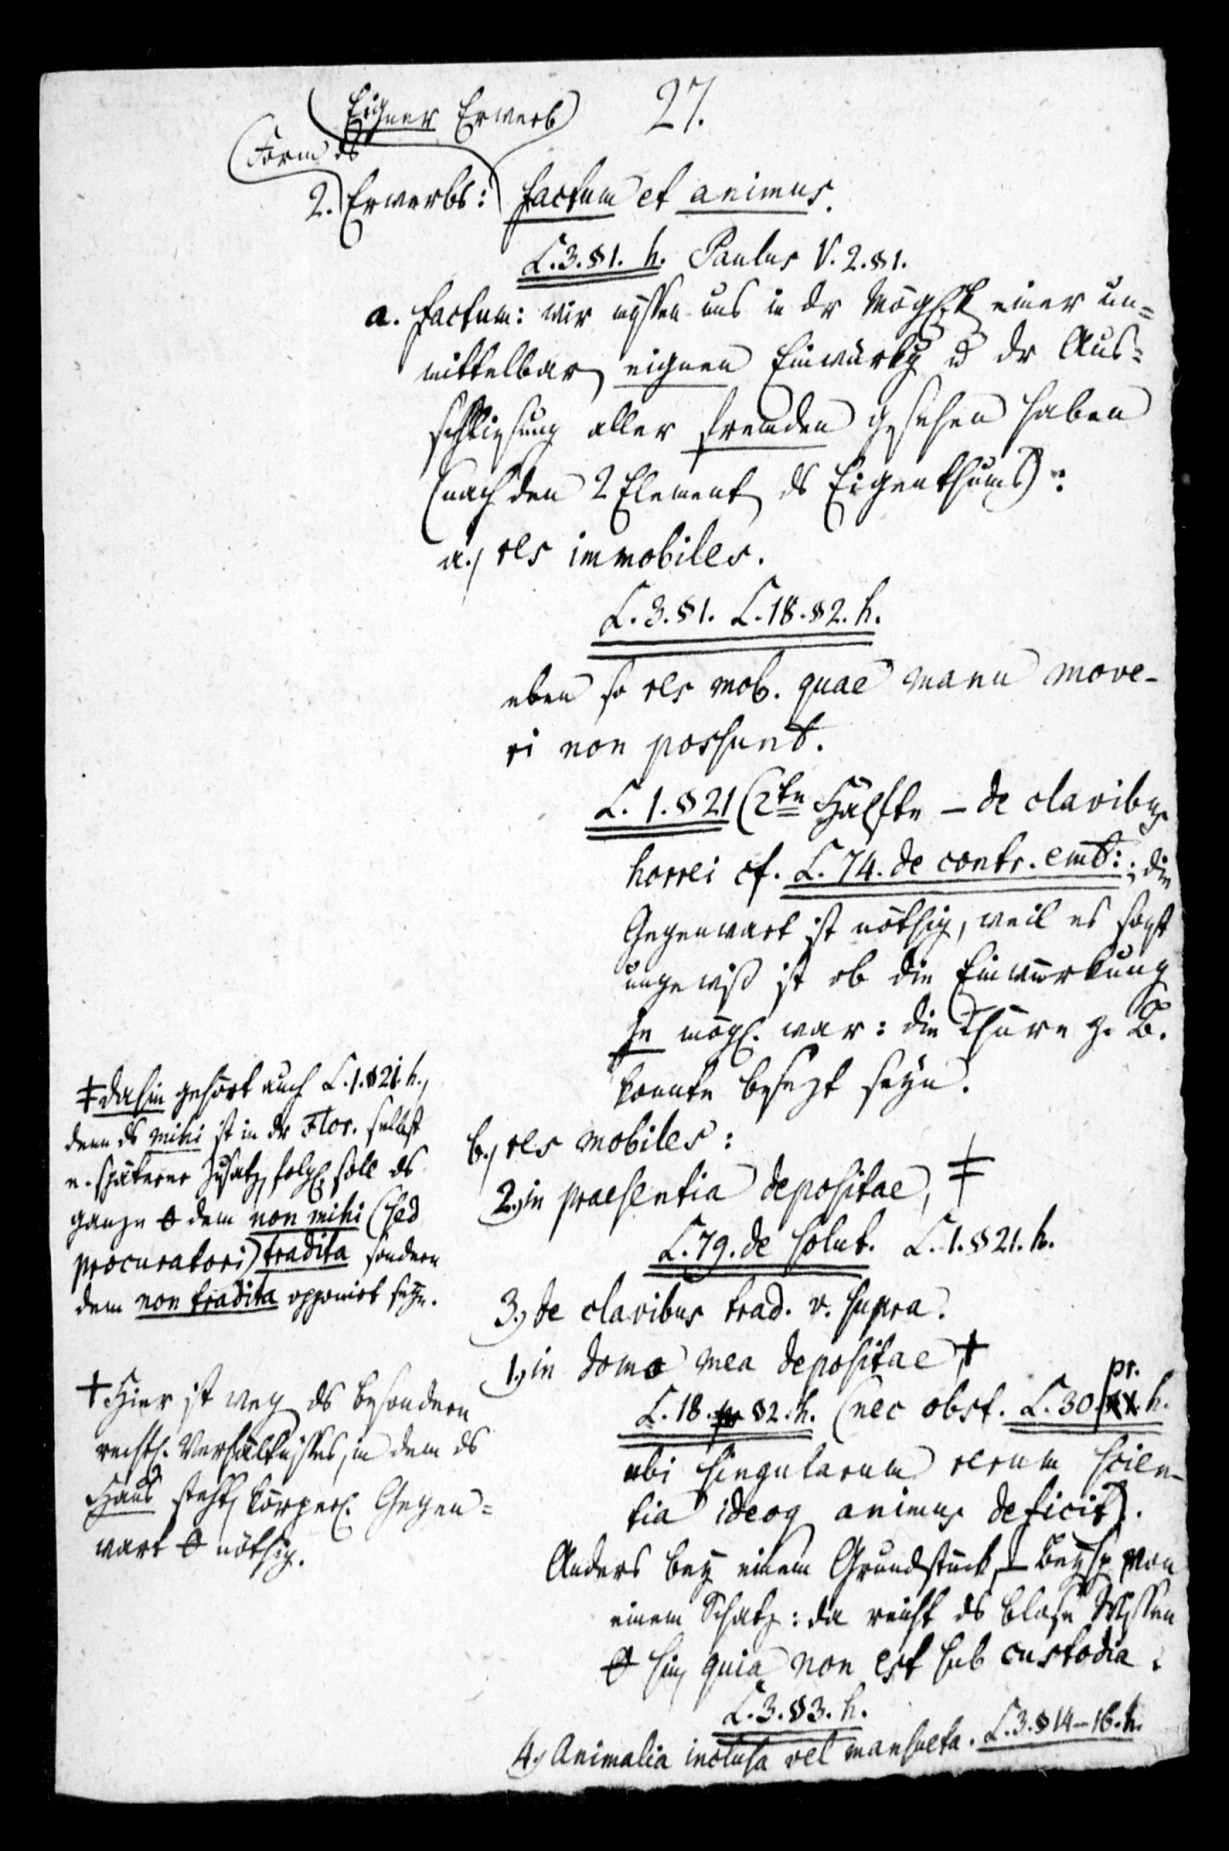 27.
Eigner Erwerb
Form ds
2. Erwerbs: factum et animus.
L. 3. § 1. h. Paulus V. 2. § 1.
a. factum: wir müssen uns in dr Möglk einer un=
mittelbar eignen Einwürkg u dr Aus=
schließung aller fremden gesehen haben
(nach den 2 Element ds Eigenthums):
a., res immobiles.
L. 3. § 1. L. 18. § 2. h.
eben so res mob. quae manu move-
ri non possunt.
L. 1. § 21 (2te Hälfte – de clavibus
horrei cf. L. 74. de contr. emt: ; die
Gegenwart ist nöthig, weil es sonst
ungewiß ist ob die Einwürkung
je mögl. war: die Thüre z. B.
konnte besezt seyn.
b., res mobiles:
2., in praesentia depositae, ‡
L. 79. de solut. L. 1. § 21. h.
3., de clavibus trad. v. supra.
1., in domo mea depositae †
L. 18. § 2. h. (nec obst. L. 30. pr. h.
ubi singularum rerum scien-
tia ideoq animus deficit).
Anders bey einem Grundstück, – Beysp von
einem Schatz: da reicht ds blose Wissen
hin, quia non est sub custodia.
L. 3. § 3. h.
4., Animalia inclusa vel mansueta. L. 3. § 14–16. h.
‡ dahin gehört auch L. 1. § 21. h.,
denn ds mihi ist in dr Flor. selbst
e. späterer Zusatz, folgl. soll ds
ganze dem non mihi (sed
procuratori) tradita sondern
dem non tradita opponirt seyn.
† Hier ist weg ds besondern
rechtl. Verhältnisses, in dem ds
Haus steht, körperl. Gegen=
wart nöthig.